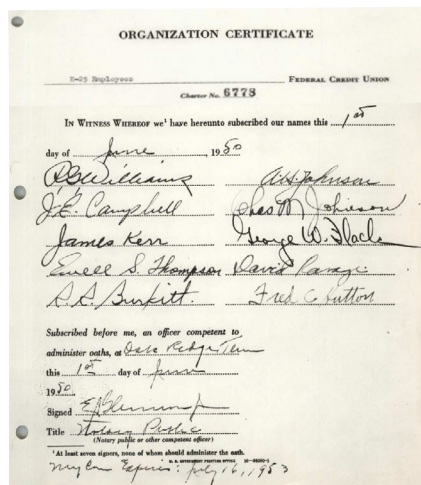 ORGANIZATION CERTIFICATE
K-25 Employees FEDERAL CREDIT UNION
Charter No. 6778
IN WITNESS WHEREOF we¹ have hereunto subscribed our names this 1st
day of June, 1950
R.G. Williams A.H. Johnson
J.E. Campbell Chas M Johnson
James Kerr George W. Flack
Ewell S. Thompson David
Burkitt. Fred C Hutton
Subscribed before me, an officer competent to
administer oaths, at Oak Ridge Tenn
this 1st day of June
1950.
Signed
Title Notary Public
(Notary public or other competent officer)
¹At least seven signers, none of whom should administer the oath.
U. S. GOVERNMENT PRINTING OFFICE
My Com Expires: July 16, 1953